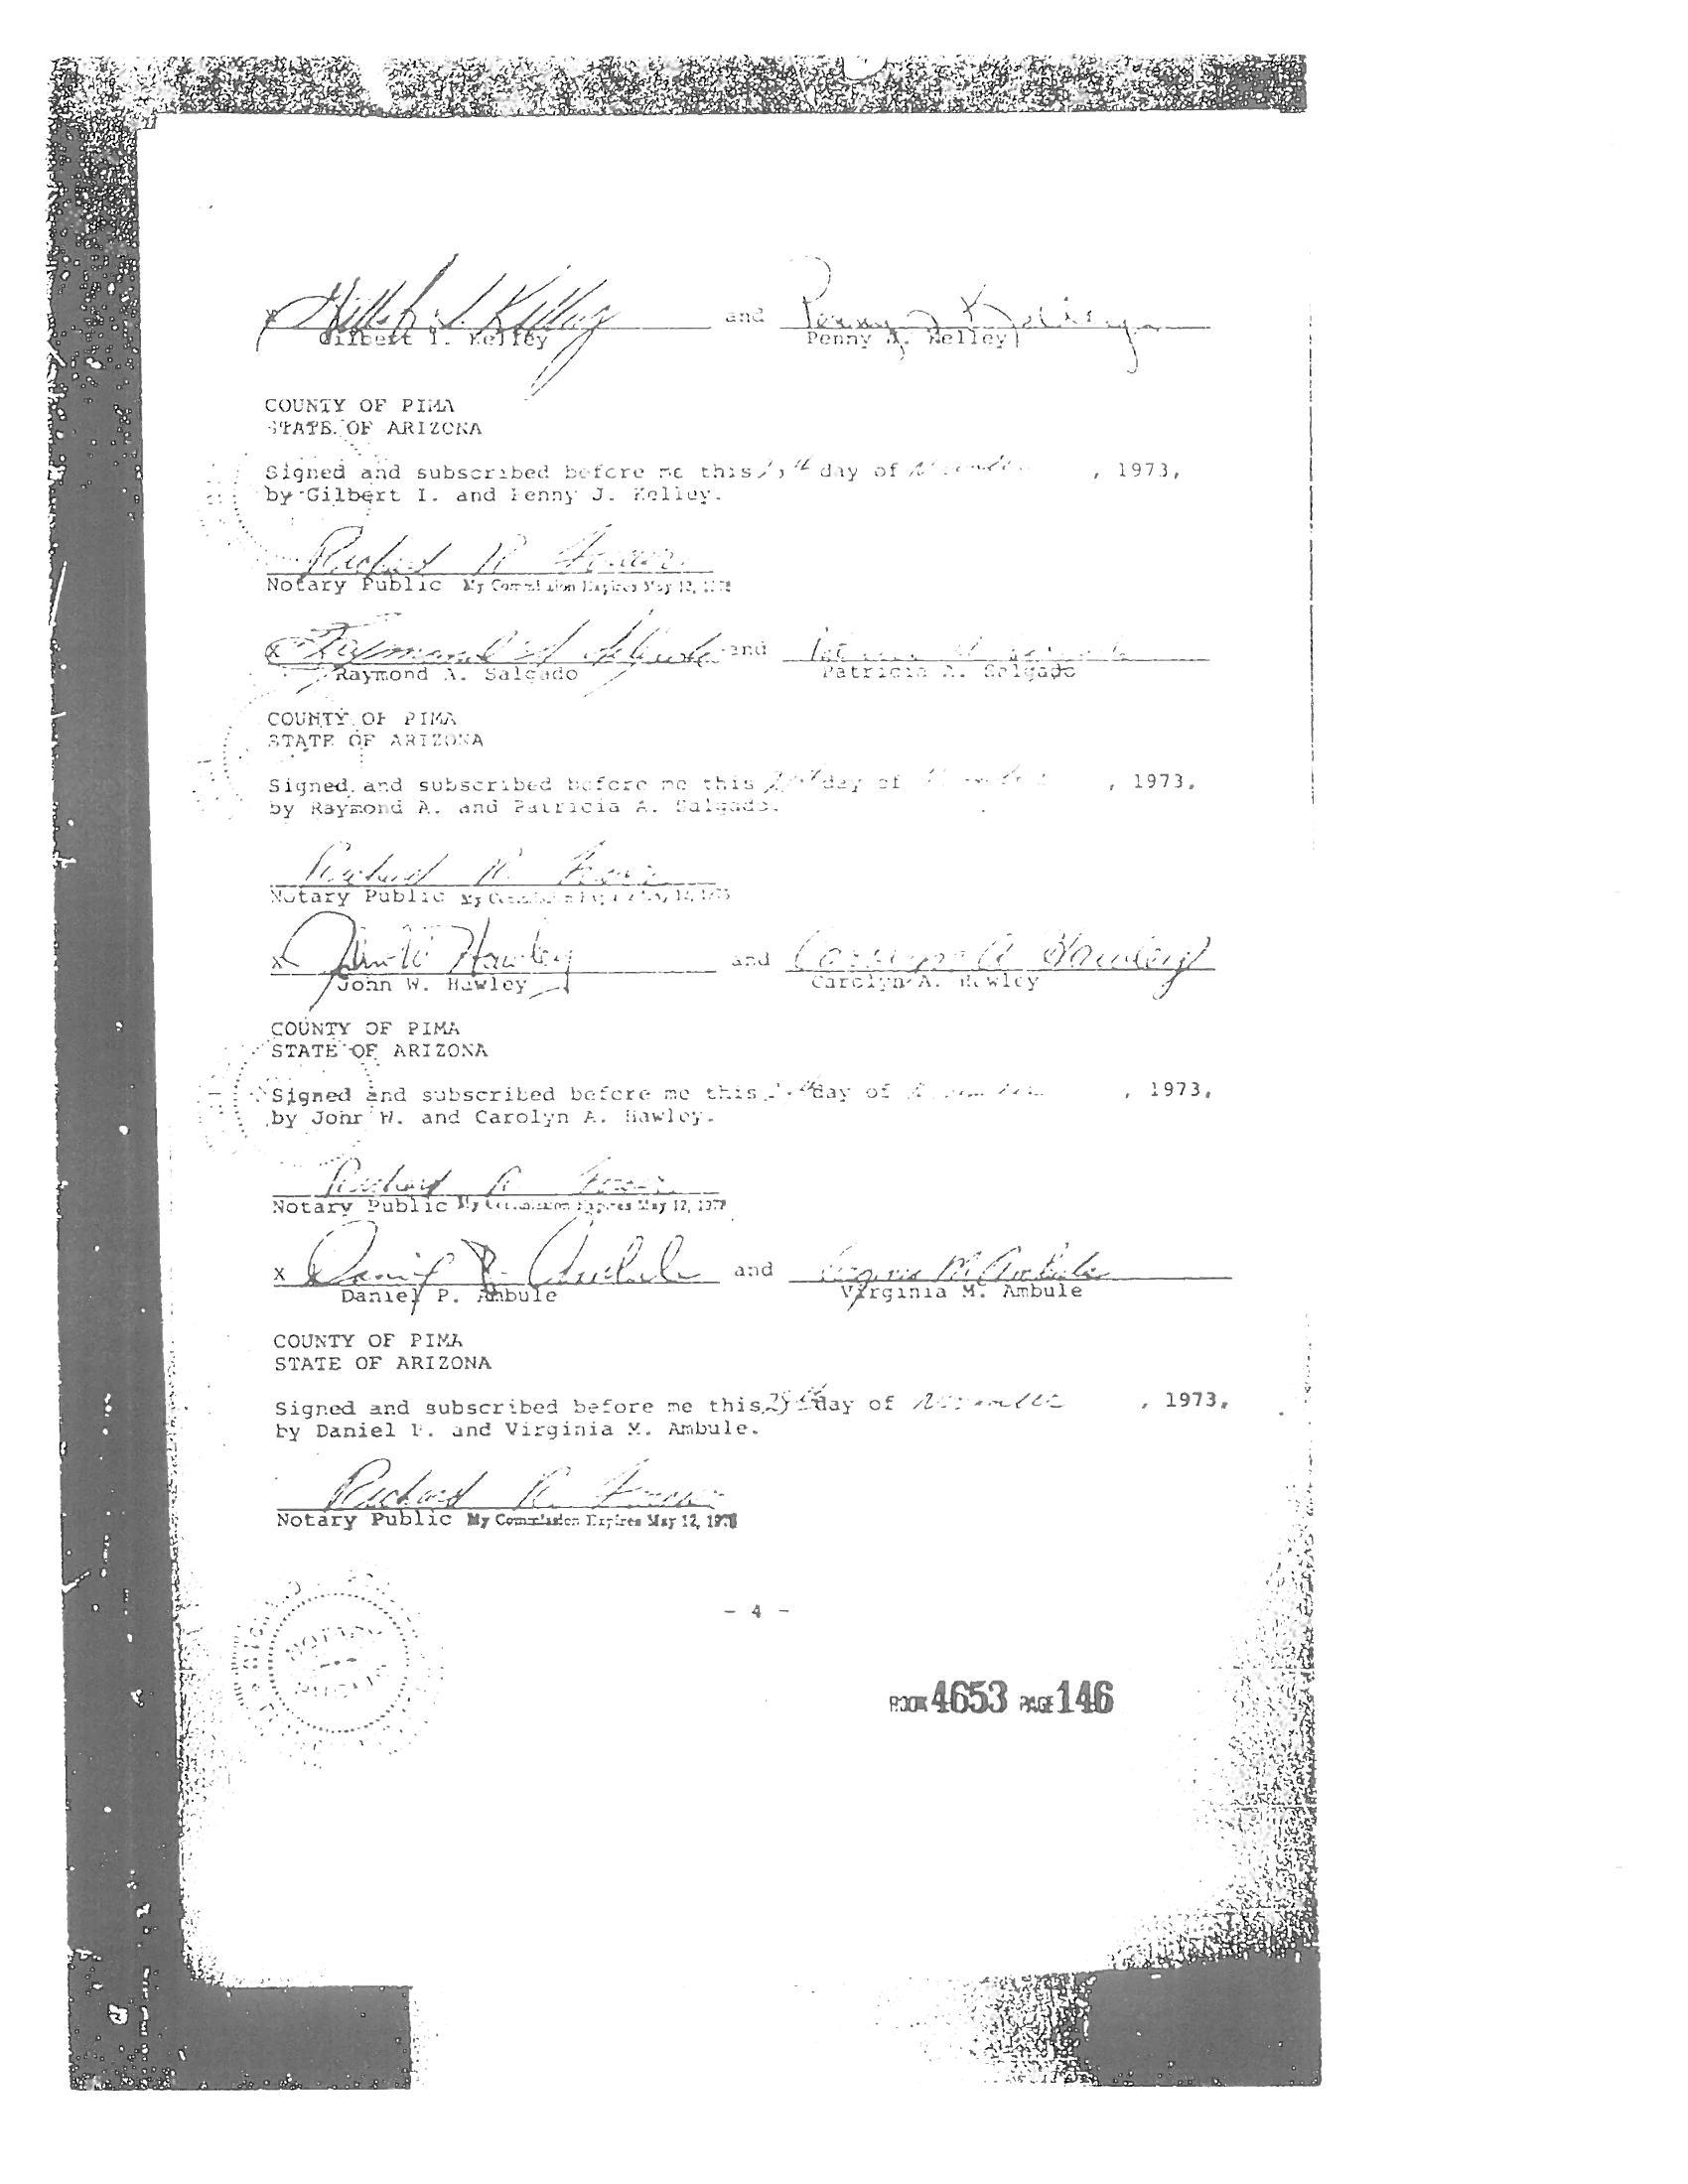 x Gilbert I. Kelley and Penny J. Kelley
Gilbert I. Kelley Penny J. Kelley
COUNTY OF PIMA
STATE OF ARIZONA
Signed and subscribed before me this day of November , 1973,
by Gilbert I. and Penny J. Kelley.
Richard R.
Notary Public My Commission Expires May 12, 
x Raymond A. Salgado and Patricia A. Salgado
Raymond A. Salgado Patricia A. Salgado
COUNTY OF PIMA
STATE OF ARIZONA
Signed and subscribed before me this day of November , 1973,
by Raymond A. and Patricia A. Salgado.
Richard R.
Notary Public My
x John W Hawley and Carolyn A Hawley
John W. Hawley Carolyn A. Hawley
COUNTY OF PIMA
STATE OF ARIZONA
Signed and subscribed before me this day of November , 1973,
by John W. and Carolyn A. Hawley.
Richard R.
Notary Public My Commission Expires May 12,
x Daniel P. Ambule and Virginia M. Ambule
Daniel P. Ambule Virginia M. Ambule
COUNTY OF PIMA
STATE OF ARIZONA
Signed and subscribed before me this 25th day of November , 1973,
by Daniel P. and Virginia M. Ambule.
Richard R.
Notary Public My Commission Expires May 12,
NOTARY
PUBLIC
- 4 -
BOOK 4653 PAGE 146